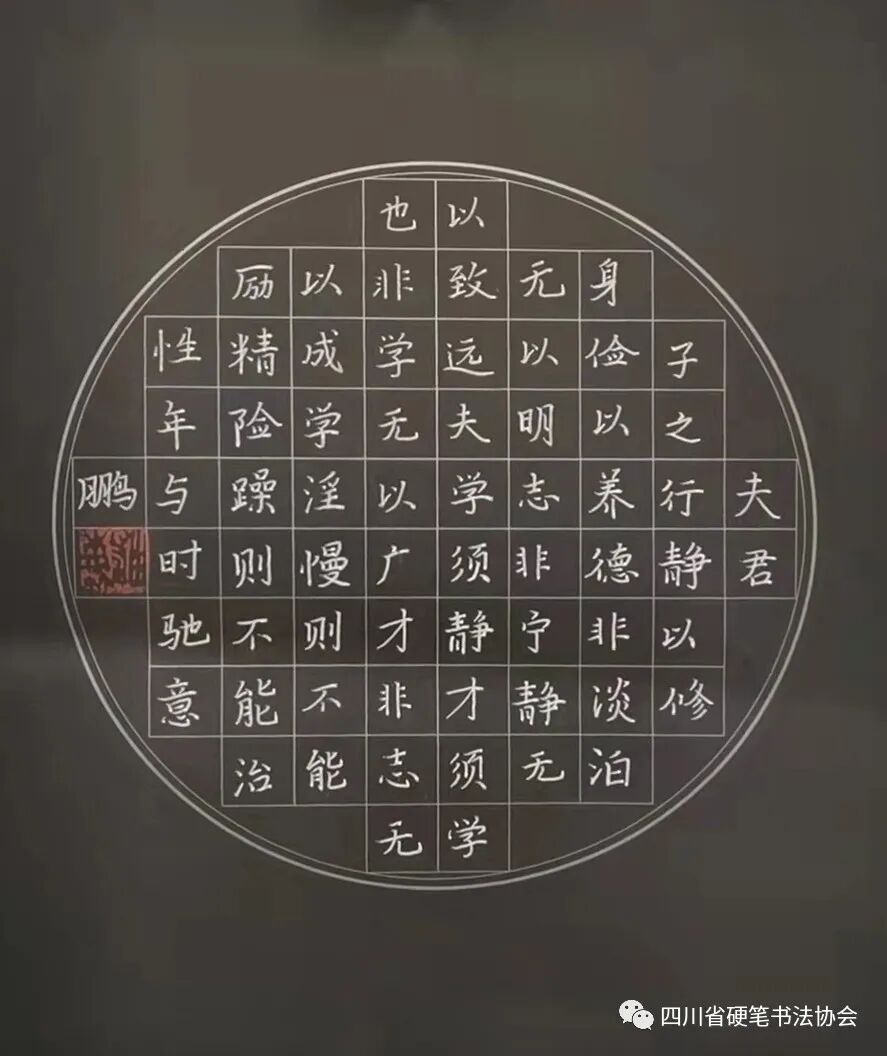 夫君
子之行静以修
身俭以养德非淡泊
无以明志非宁静无
以致远夫学须静才须学
也非学无以广才非志无
以成学淫慢则不能
励精险躁则不能治
性年与时驰意
鹏
四川省硬笔书法协会